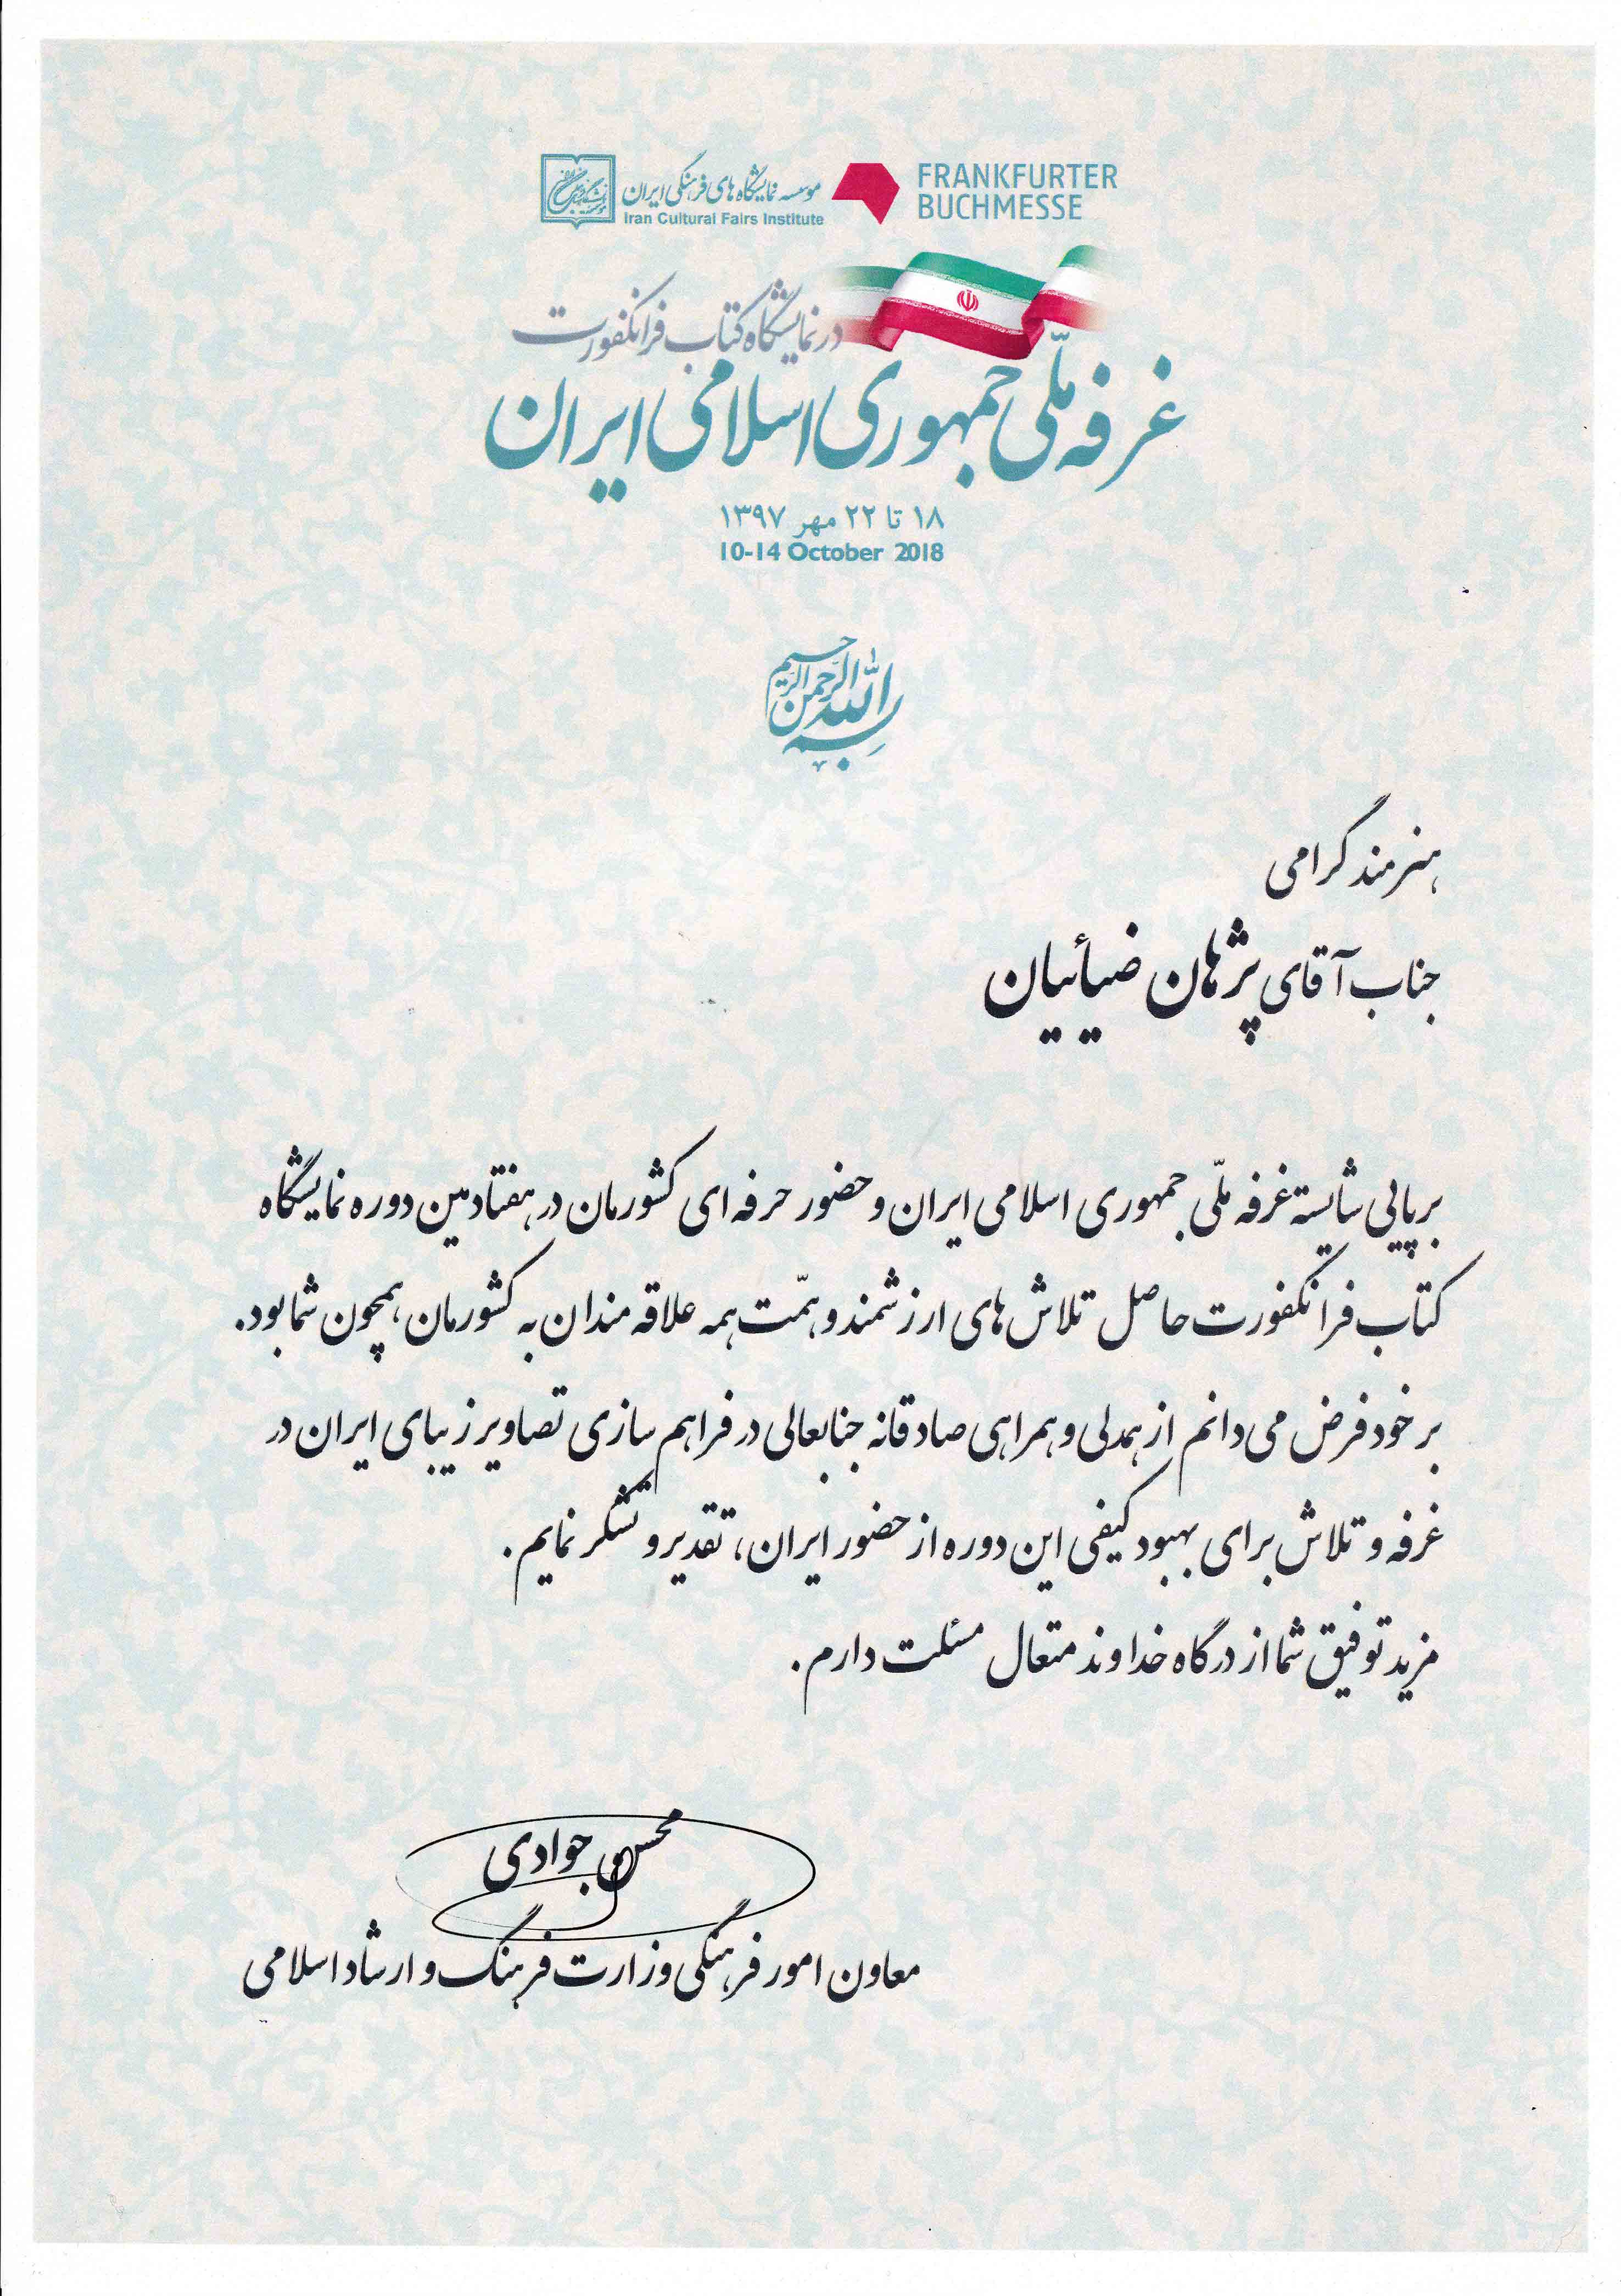 موسسه نمایشگاه های فرهنگی ایران
Iran Cultural Fairs Institute
FRANKFURTER
BUCHMESSE
در نمایشگاه کتاب فرانکفورت
غرفه ملّی جمهوری اسلامی ایران
۱۸ تا ۲۲ مهر ۱۳۹۷
10-14 October 2018
بسم الله الرحمن الرحیم
هنرمند گرامی
جناب آقای پژهان ضیائیان
برپایی شایسته غرفه ملّی جمهوری اسلامی ایران و حضور حرفه ای کشورمان در هفتادمین دوره نمایشگاه
کتاب فرانکفورت حاصل تلاش های ارزشمند و همّت همه علاقه مندان به کشورمان، همچون شما بود.
بر خود فرض می دانم از همدلی و همراهی صادقانه جنابعالی در فراهم سازی تصاویر زیبای ایران در
غرفه و تلاش برای بهبود کیفی این دوره از حضور ایران، تقدیر و تشکر نمایم.
مزید توفیق شما از درگاه خداوند متعال مسئلت دارم.
محسن جوادی
معاون امور فرهنگی وزارت فرهنگ و ارشاد اسلامی